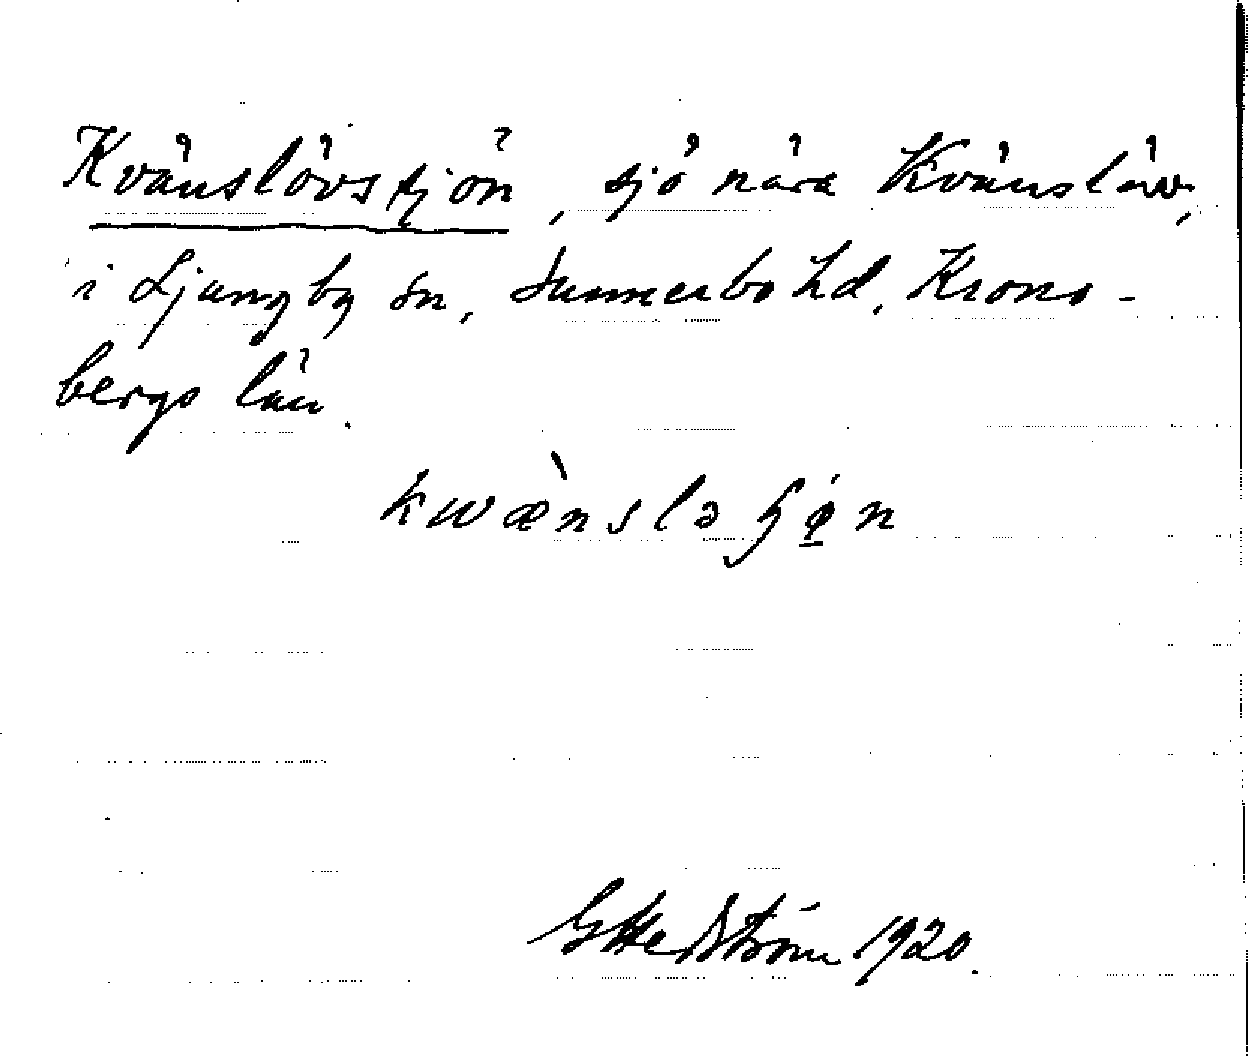 Kvänslövssjön, sjö nära Kvänslöv,
i Ljungby sn, Sunnerbo hd, Krono-
bergs län.
kwæ̀nsləʃø̱n
G Hedström 1920.